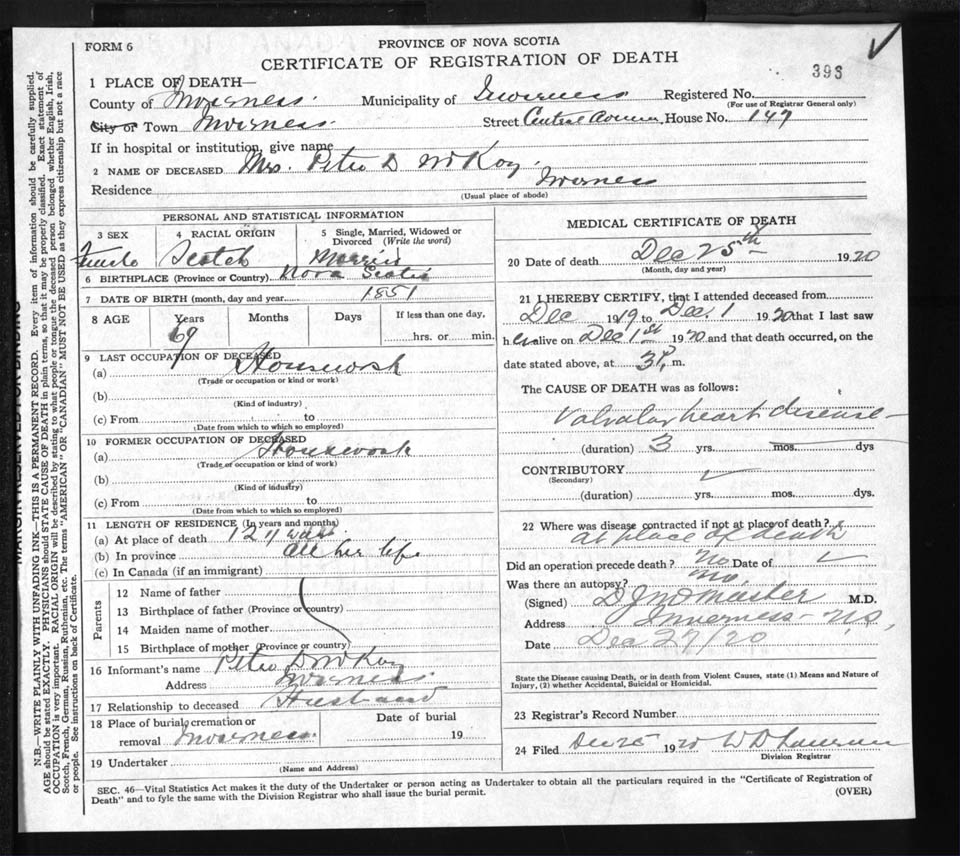 FORM 6
PROVINCE OF NOVA SCOTIA
CERTIFICATE OF REGISTRATION OF DEATH
393
1 PLACE OF DEATH—
County of Inverness. Municipality of Inverness Registered No.
(For use of Registrar General only)
City or Town Inverness. Street Central Avenue, House No. 149
If in hospital or institution, give name
2 NAME OF DECEASED Mrs. Peter D McKay.
Residence Inverness
(Usual place of abode)
PERSONAL AND STATISTICAL INFORMATION
3 SEX 4 RACIAL ORIGIN 5 Single, Married, Widowed or Divorced (Write the word)
Female Scotch Married
6 BIRTHPLACE (Province or Country) Nova Scotia
7 DATE OF BIRTH (month, day and year) 1851
8 AGE Years Months Days If less than one day,
69 hrs. or min.
9 LAST OCCUPATION OF DECEASED
(a) Housework
(Trade or occupation or kind or work)
(b)
(Kind of industry)
(c) From to
(Date from which to which so employed)
10 FORMER OCCUPATION OF DECEASED
(a) Housework
(Trade or occupation or kind of work)
(b)
(Kind of industry)
(c) From to
(Date from which to which so employed)
11 LENGTH OF RESIDENCE (In years and months)
(a) At place of death 12 years
(b) In province all her life
(c) In Canada (if an immigrant)
Parents
12 Name of father
13 Birthplace of father (Province or country)
14 Maiden name of mother
15 Birthplace of mother (Province or country)
16 Informant's name Peter D McKay
Address Inverness
17 Relationship to deceased Husband
18 Place of burial, cremation or removal Inverness. Date of burial 19
19 Undertaker
(Name and Address)
MEDICAL CERTIFICATE OF DEATH
20 Date of death Dec 25th 1920
(Month, day and year)
21 I HEREBY CERTIFY, that I attended deceased from
Dec 1919 to Dec. 1 1920 that I last saw
her alive on Dec 1st 1920 and that death occurred, on the
date stated above, at 3 P. m.
The CAUSE OF DEATH was as follows:
Valvular heart disease
(duration) 3 yrs. mos. dys
CONTRIBUTORY
(Secondary)
(duration) yrs. mos. dys.
22 Where was disease contracted if not at place of death?
at place of death
Did an operation precede death? No Date of
Was there an autopsy? No.
(Signed) D J McMaster M.D.
Address Inverness - N.S.
Date Dec 27/20
State the Disease causing Death, or in death from Violent Causes, state (1) Means and Nature of Injury, (2) whether Accidental, Suicidal or Homicidal.
23 Registrar's Record Number
24 Filed Dec 25 1920 W D
Division Registrar
SEC. 46—Vital Statistics Act makes it the duty of the Undertaker or person acting as Undertaker to obtain all the particulars required in the "Certificate of Registration of
Death" and to fyle the same with the Division Registrar who shall issue the burial permit.
(OVER)
MARGIN RESERVED FOR BINDING
N.B.—WRITE PLAINLY WITH UNFADING INK—THIS IS A PERMANENT RECORD. Every item of information should be carefully supplied.
AGE should be stated EXACTLY. PHYSICIANS should STATE CAUSE OF DEATH in plain terms, so that it may be properly classified. Exact statement of
OCCUPATION is very important. RACIAL ORIGIN will be described by stating to what people or tongue the deceased person belonged whether English, Irish,
Scotch, French, German, Russian, Ruthenian, etc. The terms "AMERICAN" OR "CANADIAN" MUST NOT BE USED as they express citizenship but not a race
or people. See instructions on back of Certificate.